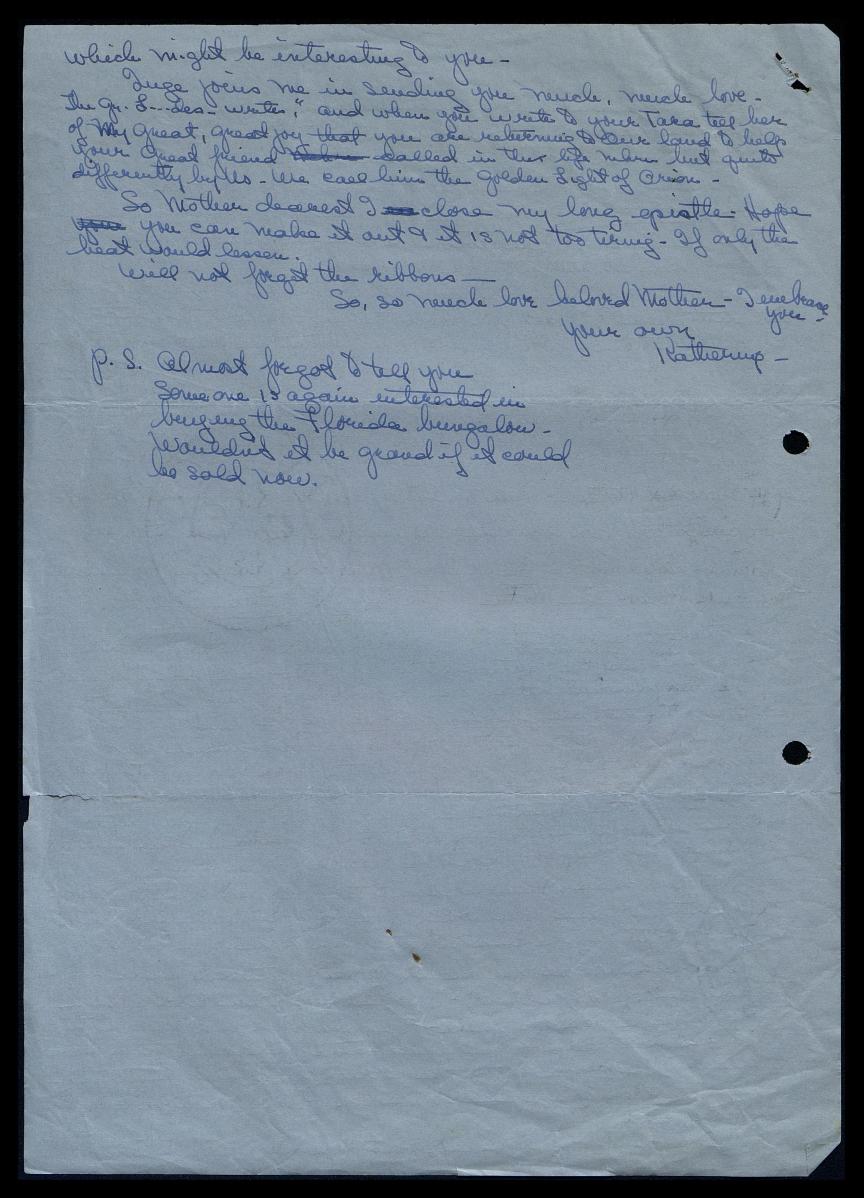 which might be interesting to you -
Inge joins me in sending you much, much love -
The Gr. L--- des- writes, " and when you write to your Tara tell her
of My great, great joy that you are returning to our land to help
your great friend called in this life but quite
differently by Us - We call him the golden Light of Orion -
So Mother dearest I close my long epistle. Hope
you can make it out & it is not too tiring - If only the
heat would lessen.
Will not forget the ribbons -
So, so much love beloved Mother - I embrace
you -
your own
Katherine -
P. S. Almost forgot to tell you
Someone is again interested in
buying the Florida bungalow -
Wouldn't it be grand if it could
be sold now.